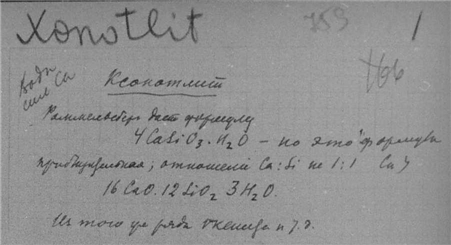 Xonotlit
753
1
166
водн
сил. Ca
Ксонотлит
Раммельсберг дает формулу
4CaSiO₃·H₂O – но это формула
приблизительная; отношение Ca:Si не 1:1 Ca >
16CaO.12SiO₂ 3H₂O.
Из того же ряда окенит и т.д.